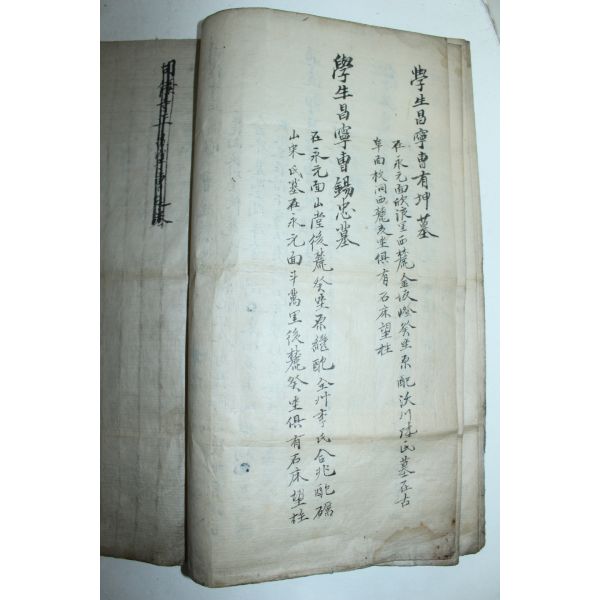 學生昌寧曺有坤墓
在永元面欣浪里西麓金坂嶝癸坐原配沃川陸氏墓在古
阜南校洞西麓艮坐俱有石床望柱
學生昌寧曺錫忠墓
在永元面山堂後麓癸坐原繼配全州李氏合兆配礪
山宋氏墓在永元面斗萬里後麓癸坐俱有石床望柱